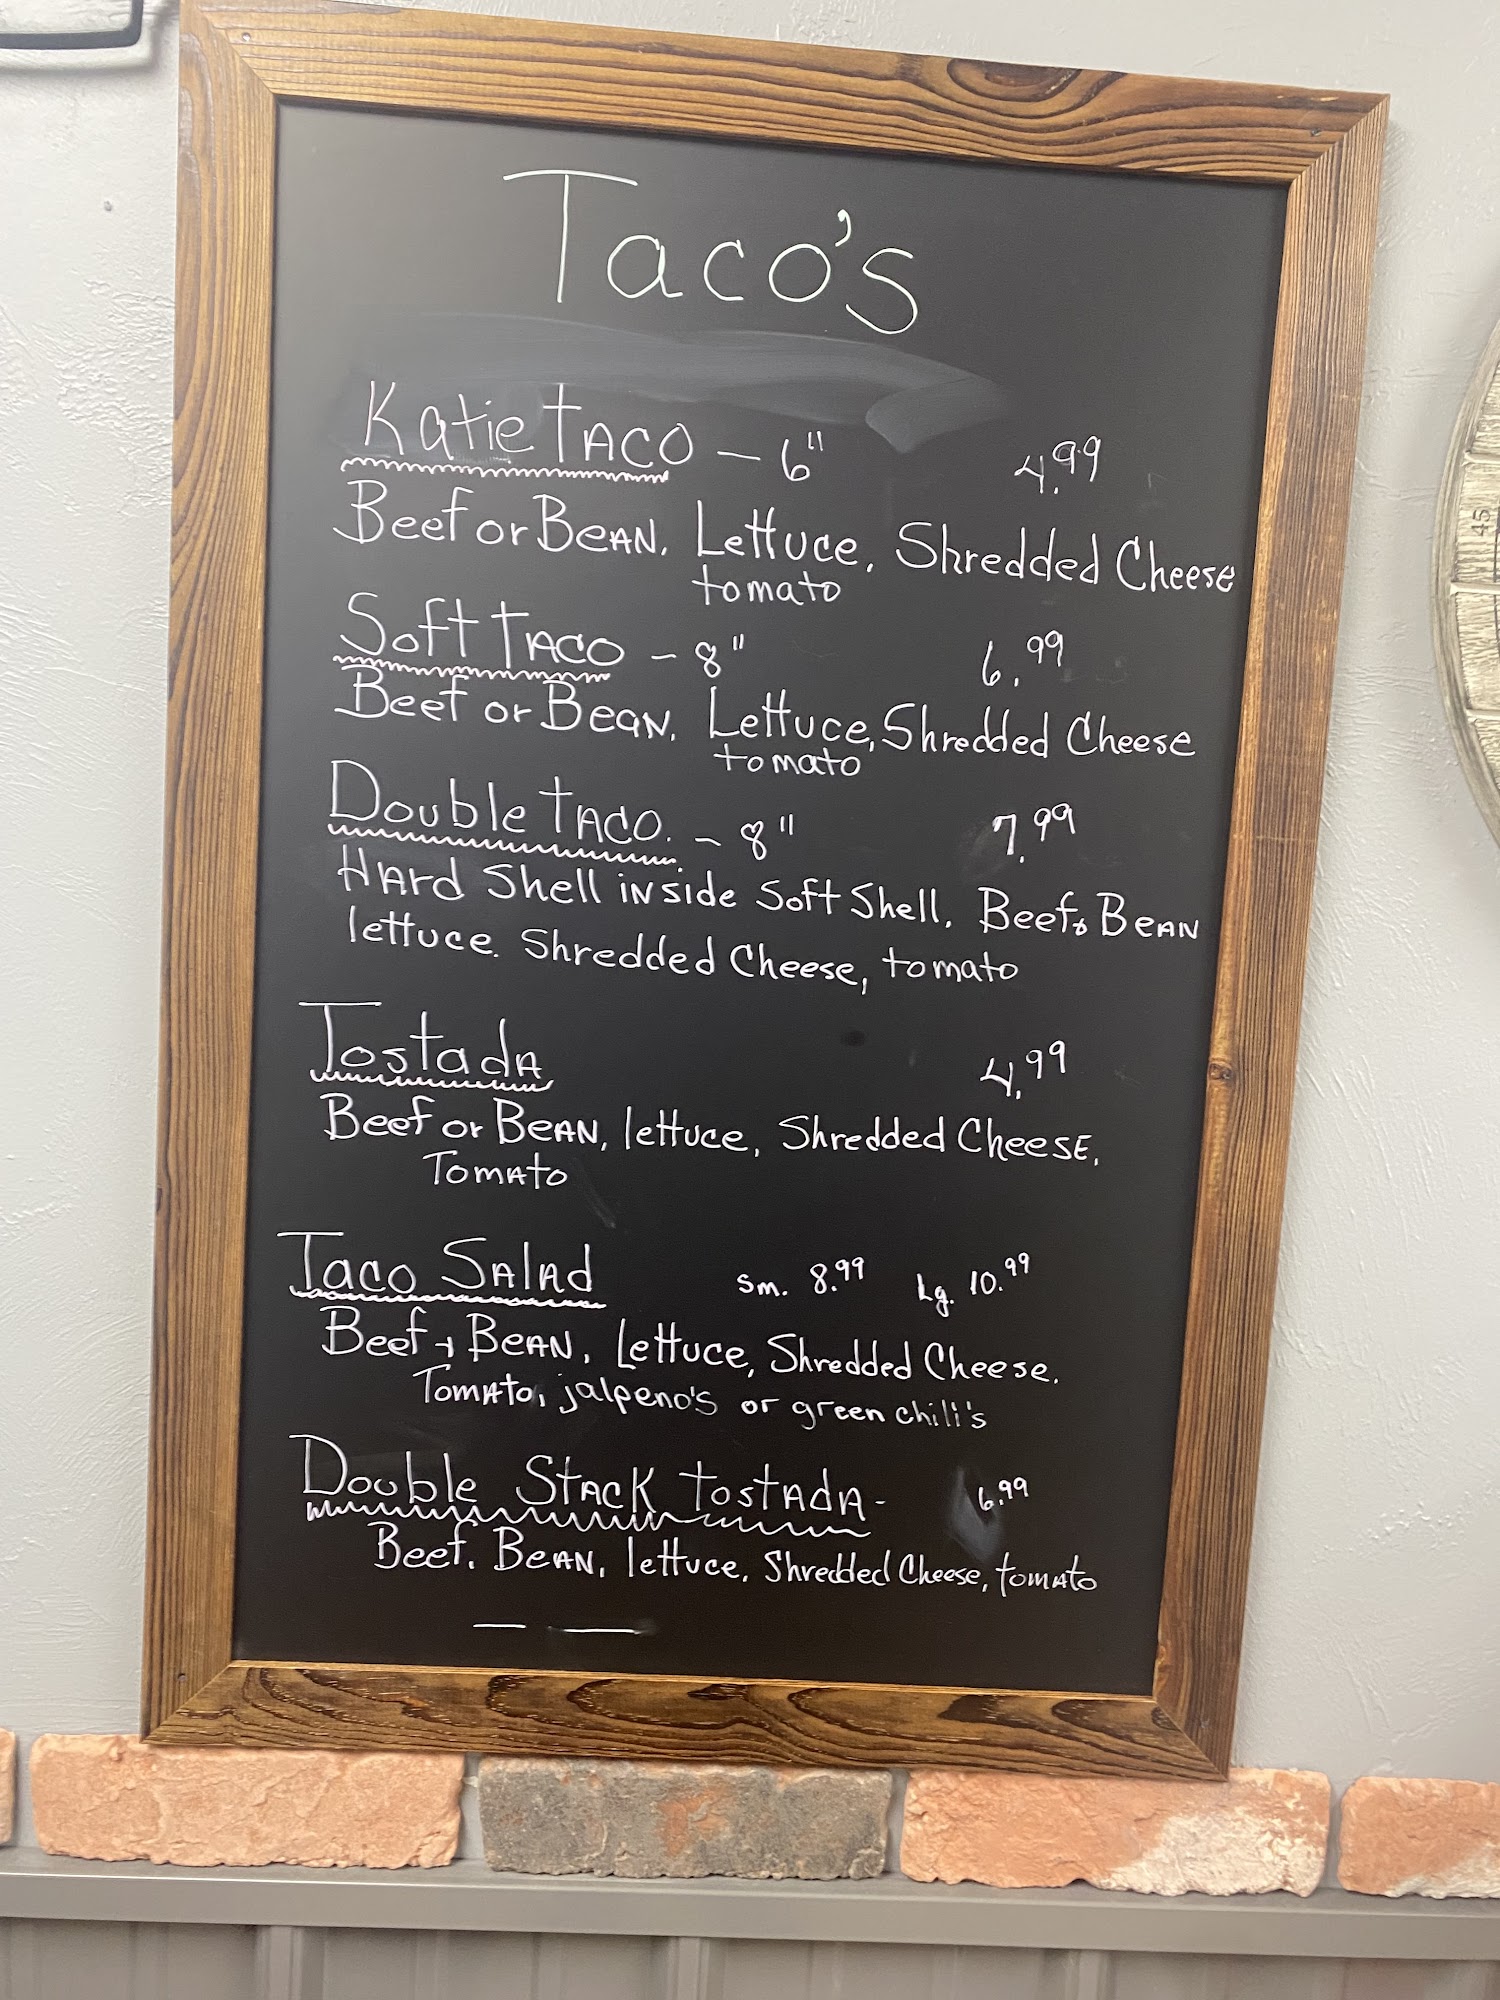 Taco's
Katie Taco - 6" 4.99
Beef or Bean, Lettuce, Shredded Cheese
tomato
Soft Taco - 8" 6.99
Beef or Bean, Lettuce, Shredded Cheese
tomato
Double Taco. - 8" 7.99
Hard Shell inside Soft Shell. Beef & Bean
lettuce. Shredded Cheese, tomato
Tostada 4.99
Beef or Bean, lettuce, Shredded Cheese,
Tomato
Taco Salad Sm. 8.99 Lg. 10.99
Beef + Bean, Lettuce, Shredded Cheese.
Tomato, jalpeno's or green chili's
Double Stack Tostada - 6.99
Beef. Bean, lettuce. Shredded Cheese, tomato
45